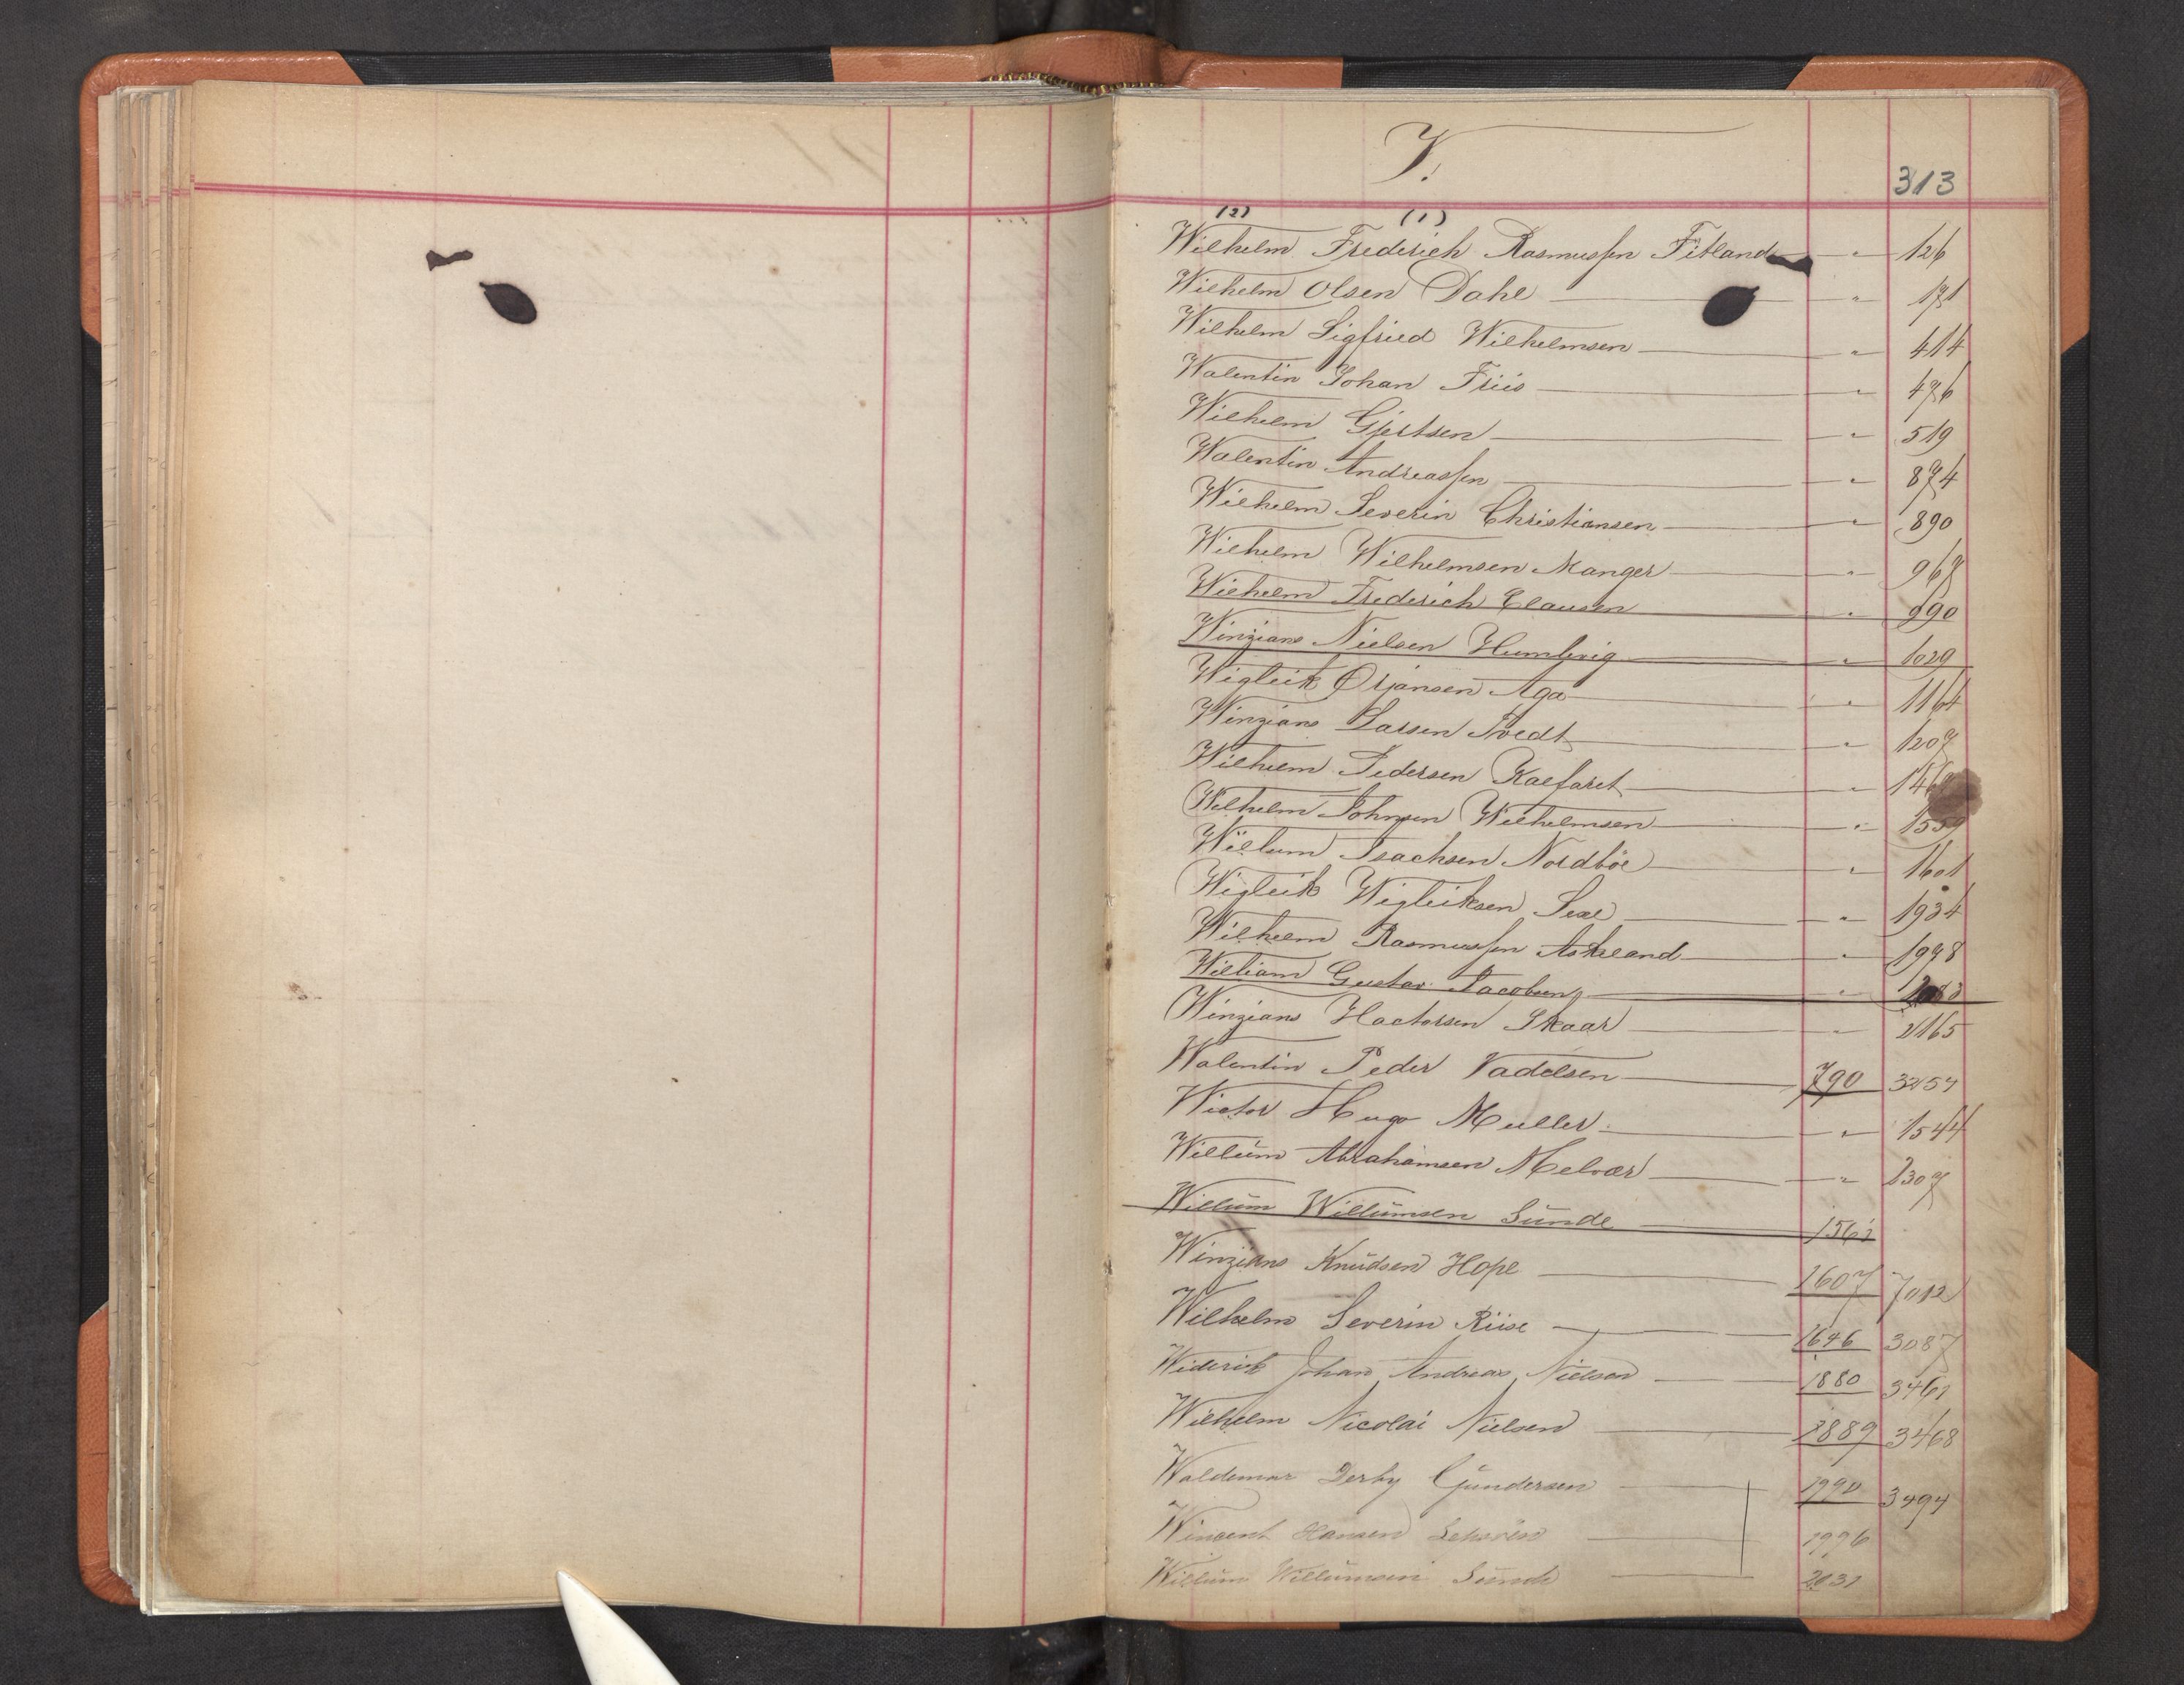 V.
313
(2) (1)
Wilhelm Frederich Rasmussen Fitland " 126
Wilhelm Olsen Dahl " 171
Wilhelm Sigfried Wilhelmsen " 414
Walentin Johan Friis " 476
Wilhelm Gjertsen " 519
Walentin Andreassen " 874
Wilhelm Severin Christiansen " 890
Wilhelm Wilhelmsen Manger " 967
Wilhelm Frederich Clausen " 990
Winzians Nielsen Humlevig " 1029
Wigleik Orjansen Aga " 1164
Winzians Larsen Tvedt " 1207
Wilhelm Pedersen Kalfaret "
Wilhelm Johnsen Wilhelmsen " 1559
Willum Isachsen Nordböe " 1601
Wigleik Wigleiksen Sexe " 1934
Wilhelm Rasmussen Askeland " 1998
William Gustav Jacobsen "
Winzians Hactorsen Skaar " 2165
Walentin Peder Vadelsen 790 3257
Wictor Hugo Muller " 1544
Willum Abrahamsen Melvær " 2307
Willum Willumsen Sunde 1563
Winzians Knudsen Hope 1607 7012
Wilhelm Severin Riise 1646 3087
Widerik Johan Andreas Nielsen 1880 3461
Wilhelm Nicolai Nielsen 1889 3468
Waldemar Derby Gundersen 1990 3494
Wincent Hansen 1996
Willum Willumsen Sunde 2031